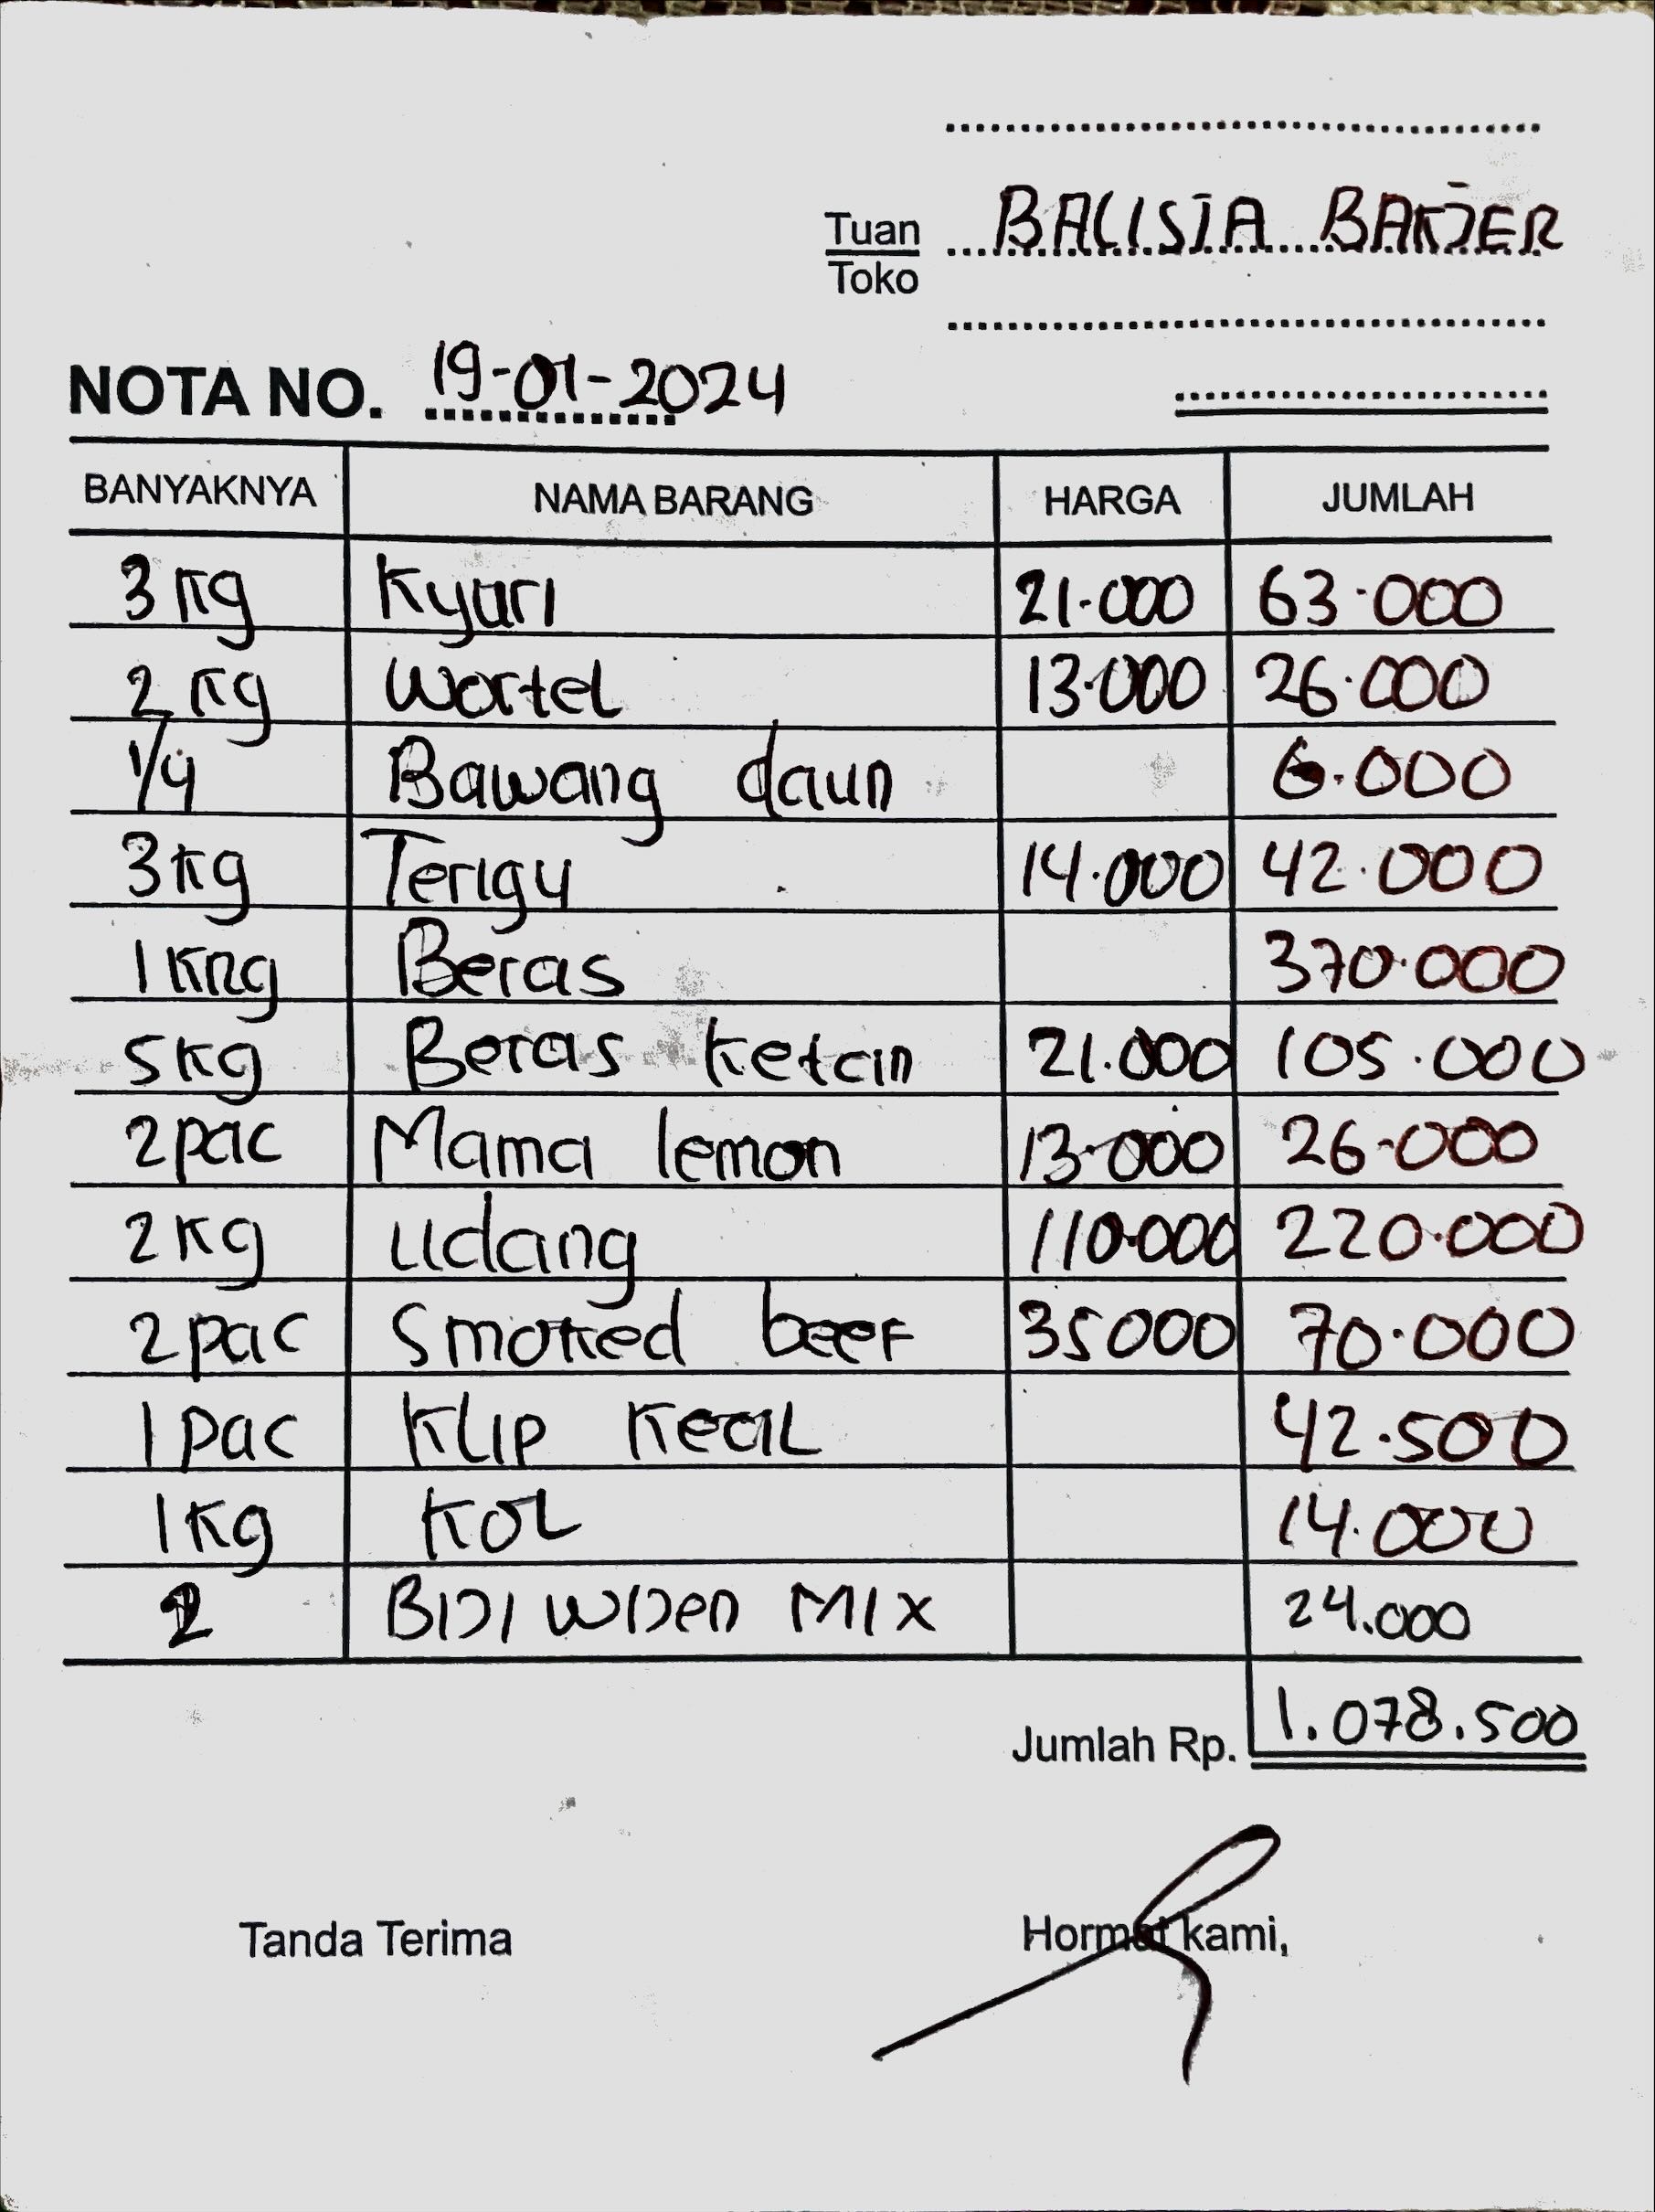 Tuan
Toko
BALISTA BANJER
NOTA NO. 19-01-2024
BANYAKNYA NAMA BARANG HARGA JUMLAH
3 kg Kyuri 21.000 63.000
2 kg Wortel 13.000 26.000
1/4 Bawang daun 6.000
3 kg Terigu 14.000 42.000
1 krng Beras 370.000
5 kg Beras ketan 21.000 105.000
2 pac Mama lemon 13.000 26.000
2 kg udang 110.000 220.000
2 pac Smoked beef 35000 70.000
1 pac Klip kecil 42.500
1 kg KOL 14.000
2 BIJI WIJEN MIX 24.000
Jumlah Rp. 1.078.500
Tanda Terima Hormat kami,